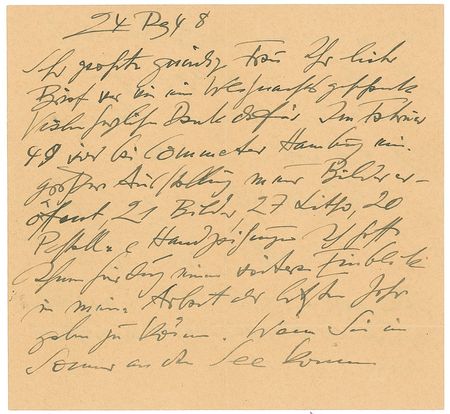 24 Dez 48
Sehr geehrte gnädige Frau Ihr lieber
Brief war mir ein Weihnachtsgeschenk
Vielen herzlichen Dank dafür Im Februar
49 wird bei Commeter Hamburg eine
größere Ausstellung meiner Bilder er-
öffnet 21 Bilder, 27 Litho, 20
Pastelle Handzeichnungen Ich hoffe
Ihnen einen weiteren Einblick
in meine Arbeit der letzten Jahre
geben zu können. Wenn Sie im
Sommer an den See kommen